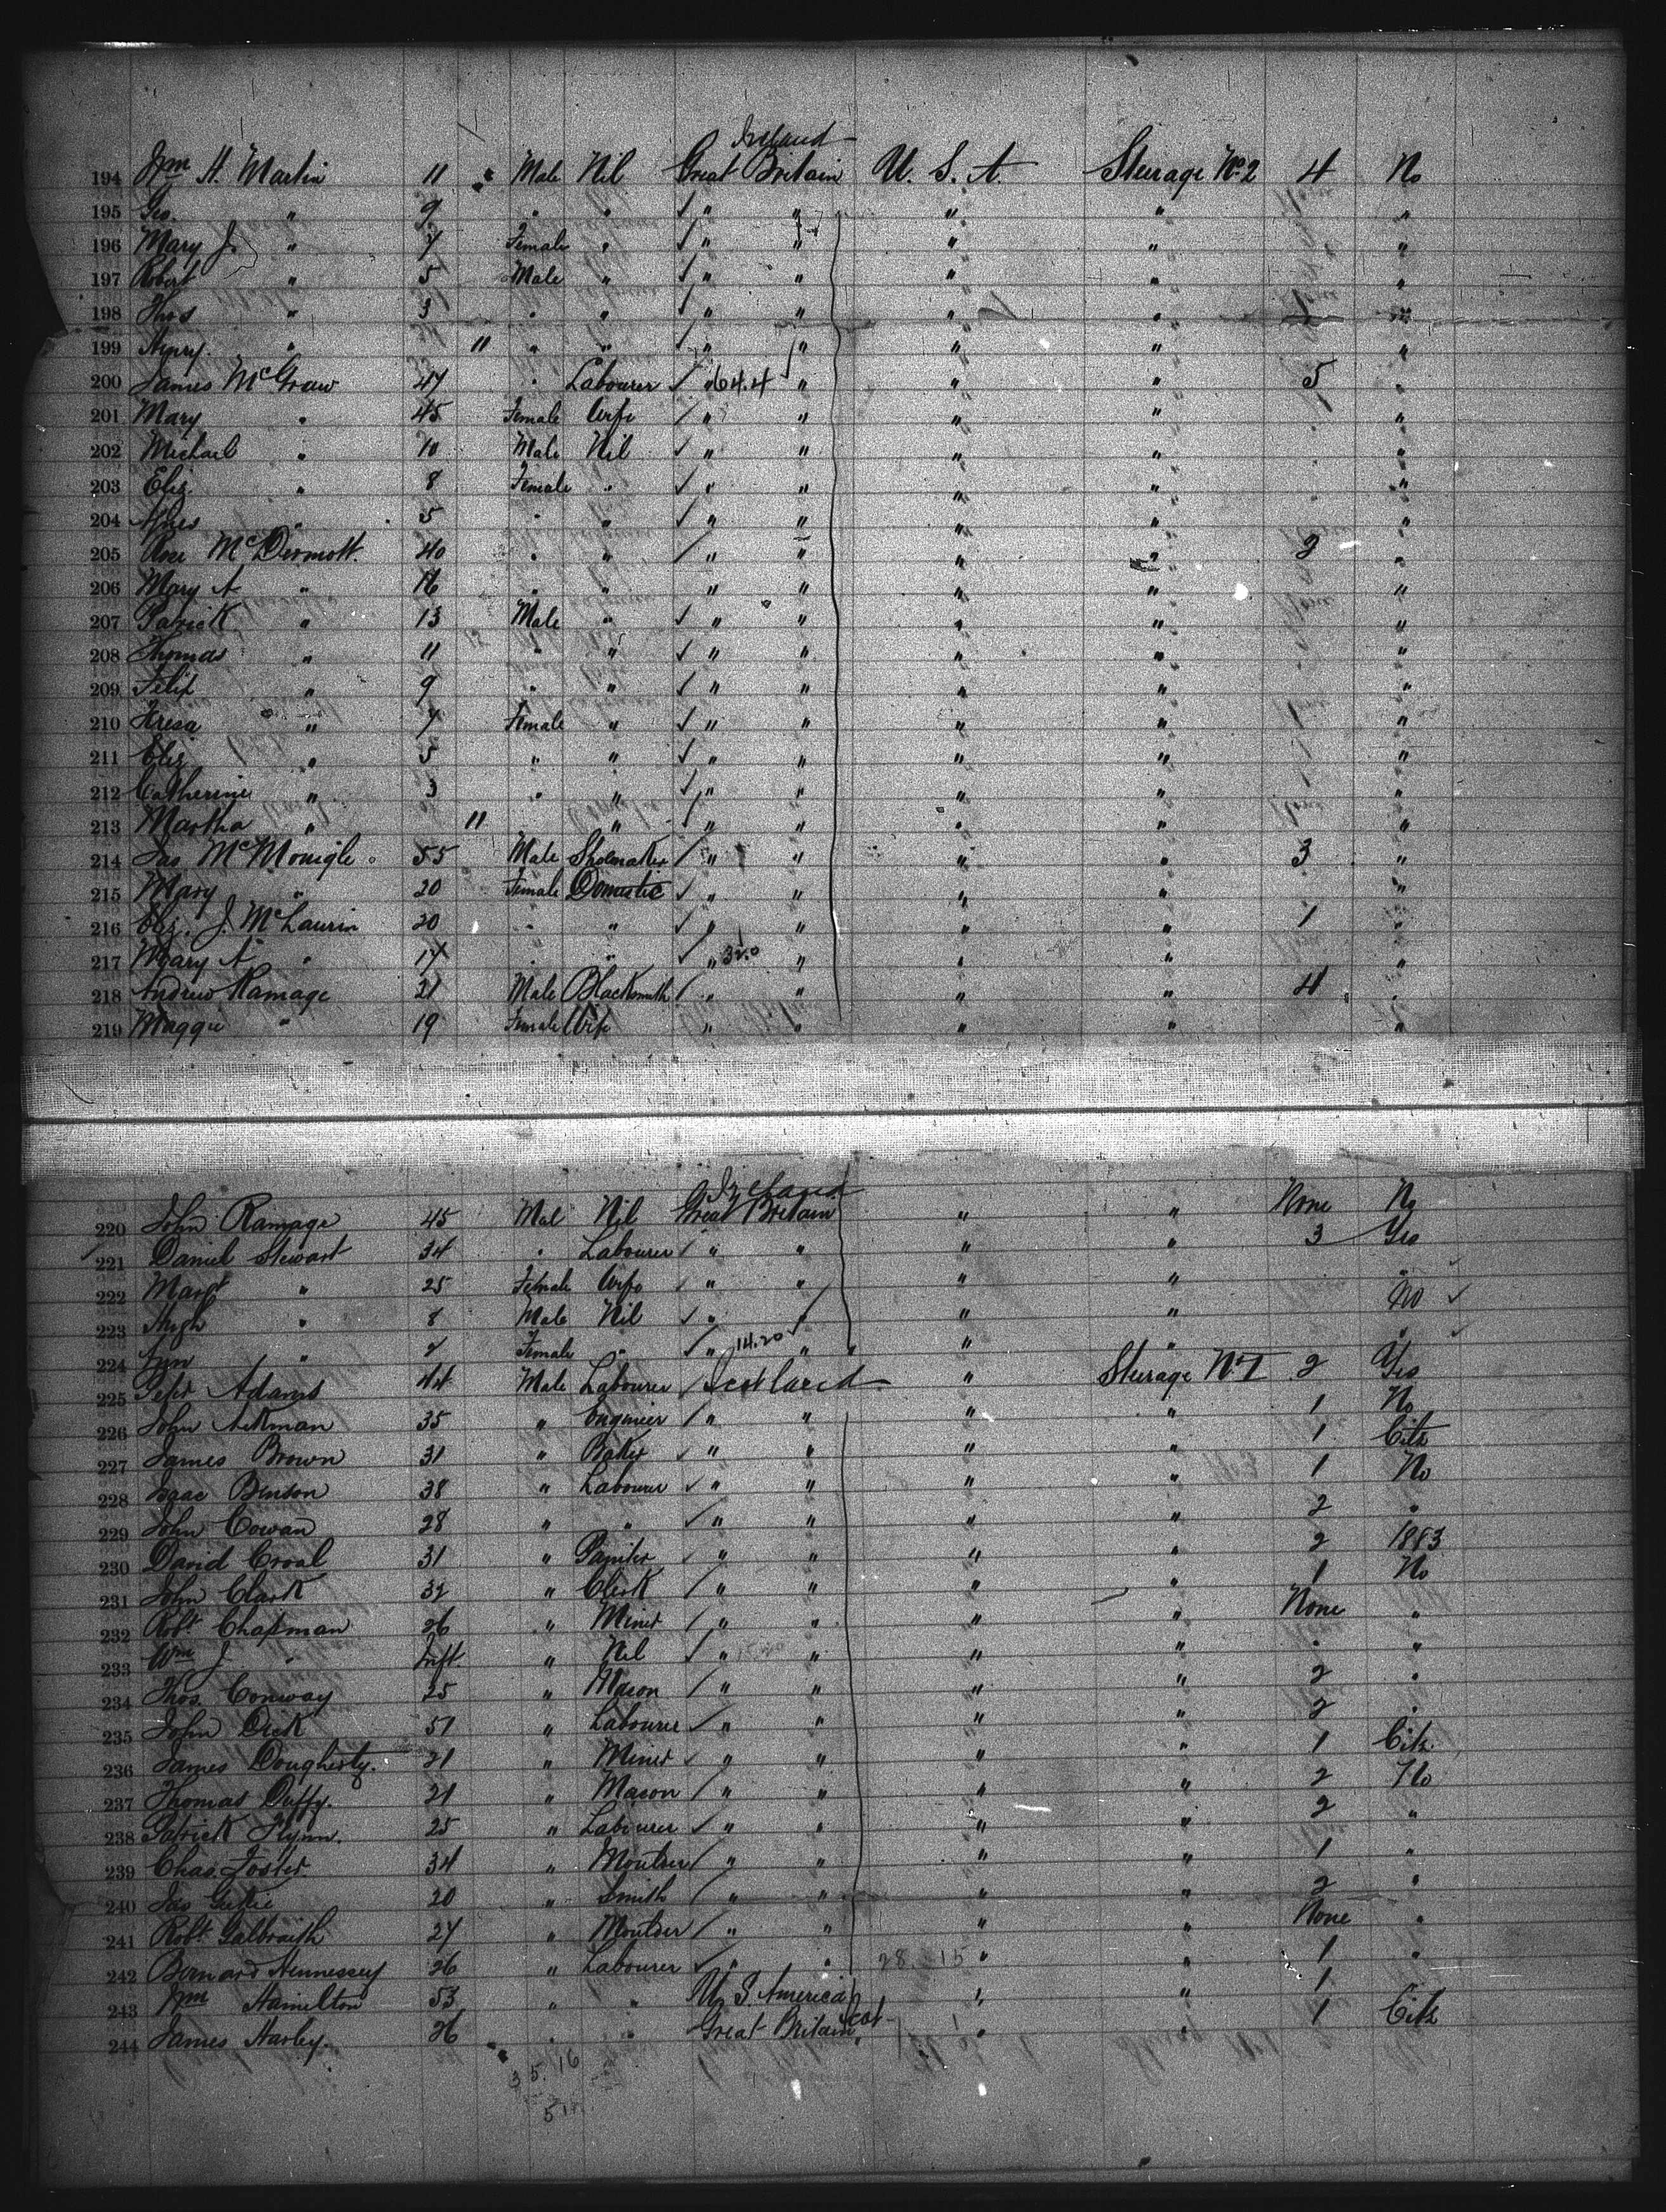 Ireland
194 Wm H. Martin 11 Male Nil Great Britain U. S. A. Steerage No 2 4 No
195 Geo. " 9 " " " " " " "
196 Mary J. " 7 Female " " " " " "
197 Robert " 5 Male " " " " " "
198 Thos " 3 " " " " " " "
199 Henry. " 11 " " " " " " "
200 James McGraw 47 " Labourer " 64.4 " " " 5 "
201 Mary " 45 Female Wife " " " " "
202 Michael " 10 Male Nil " " " " "
203 Eliz. " 8 Female " " " " " "
204 Agnes " 5 " " " " " " "
205 Rose McDermott. 40 " " " " " " 2 "
206 Mary A " 16 " " " " " " "
207 Patrick " 13 Male " " " " " "
208 Thomas " 11 " " " " " " "
209 Felix " 9 " " " " " " "
210 Teresa " 7 Female " " " " " "
211 Eliz " 5 " " " " " " "
212 Catherine " 3 " " " " " " "
213 Martha " 11 " " " " " "
214 Jas McMonigle 55 Male Shoemaker " " " " 3 "
215 Mary " 20 Female Domestic " " " " "
216 Eliz. J. McLaurin 20 " " " " " " 1 "
217 Mary A " 17 " " " " " " "
218 Andrew Ramage 21 Male Blacksmith " " " " 4 "
219 Maggie " 19 Female Wife " " " " "
Ireland
220 John Ramage 45 Mal Nil Great Britain " " None No
221 Daniel Stewart 34 " Labourer " " " " 3 Yes
222 Margt " 25 Female Wife " " " " "
223 Hugh " 8 Male Nil " " " " No
224 Ann " 2 Female " " 14.20 " " " "
225 Peter Adams 44 Male Labourer Scotland " Steerage No 1 2 Yes
226 John Aikman 35 " Engineer " " " " 1 No
227 James Brown 31 " Baker " " " " 1 Citz
228 Isaac Benson 38 " Labourer " " " " 1 No
229 John Cowan 28 " " " " " " 2 "
230 David Croal 31 " Painter " " " " 2 1883
231 John Clark 32 " Clerk " " " " 1 No
232 Robt Chapman 26 " Miner " " " " None "
233 Wm J. " Inft " Nil " " " " " "
234 Thos. Conway 25 " Mason " " " " 2 "
235 John Dick 51 " Labourer " " " " 2 "
236 James Dougherty. 21 " Miner " " " " 1 Citz
237 Thomas Duffy. 21 " Mason " " " " 2 No
238 Patrick Flynn. 25 " Labourer " " " " 2 "
239 Chas Foster 34 " Moulder " " " " 1 "
240 Jas 20 " Smith " " " " 2 "
241 Robt Galbraith 27 " Moulder " " " " None "
242 Bernard Hennessey 26 " Labourer " " 28 15 " " 1 "
243 Wm Hamilton 53 " " U. S. America " " 1
244 James Harley. 26 " " Great Britain Scot " " 1 Citz
3 5. 16